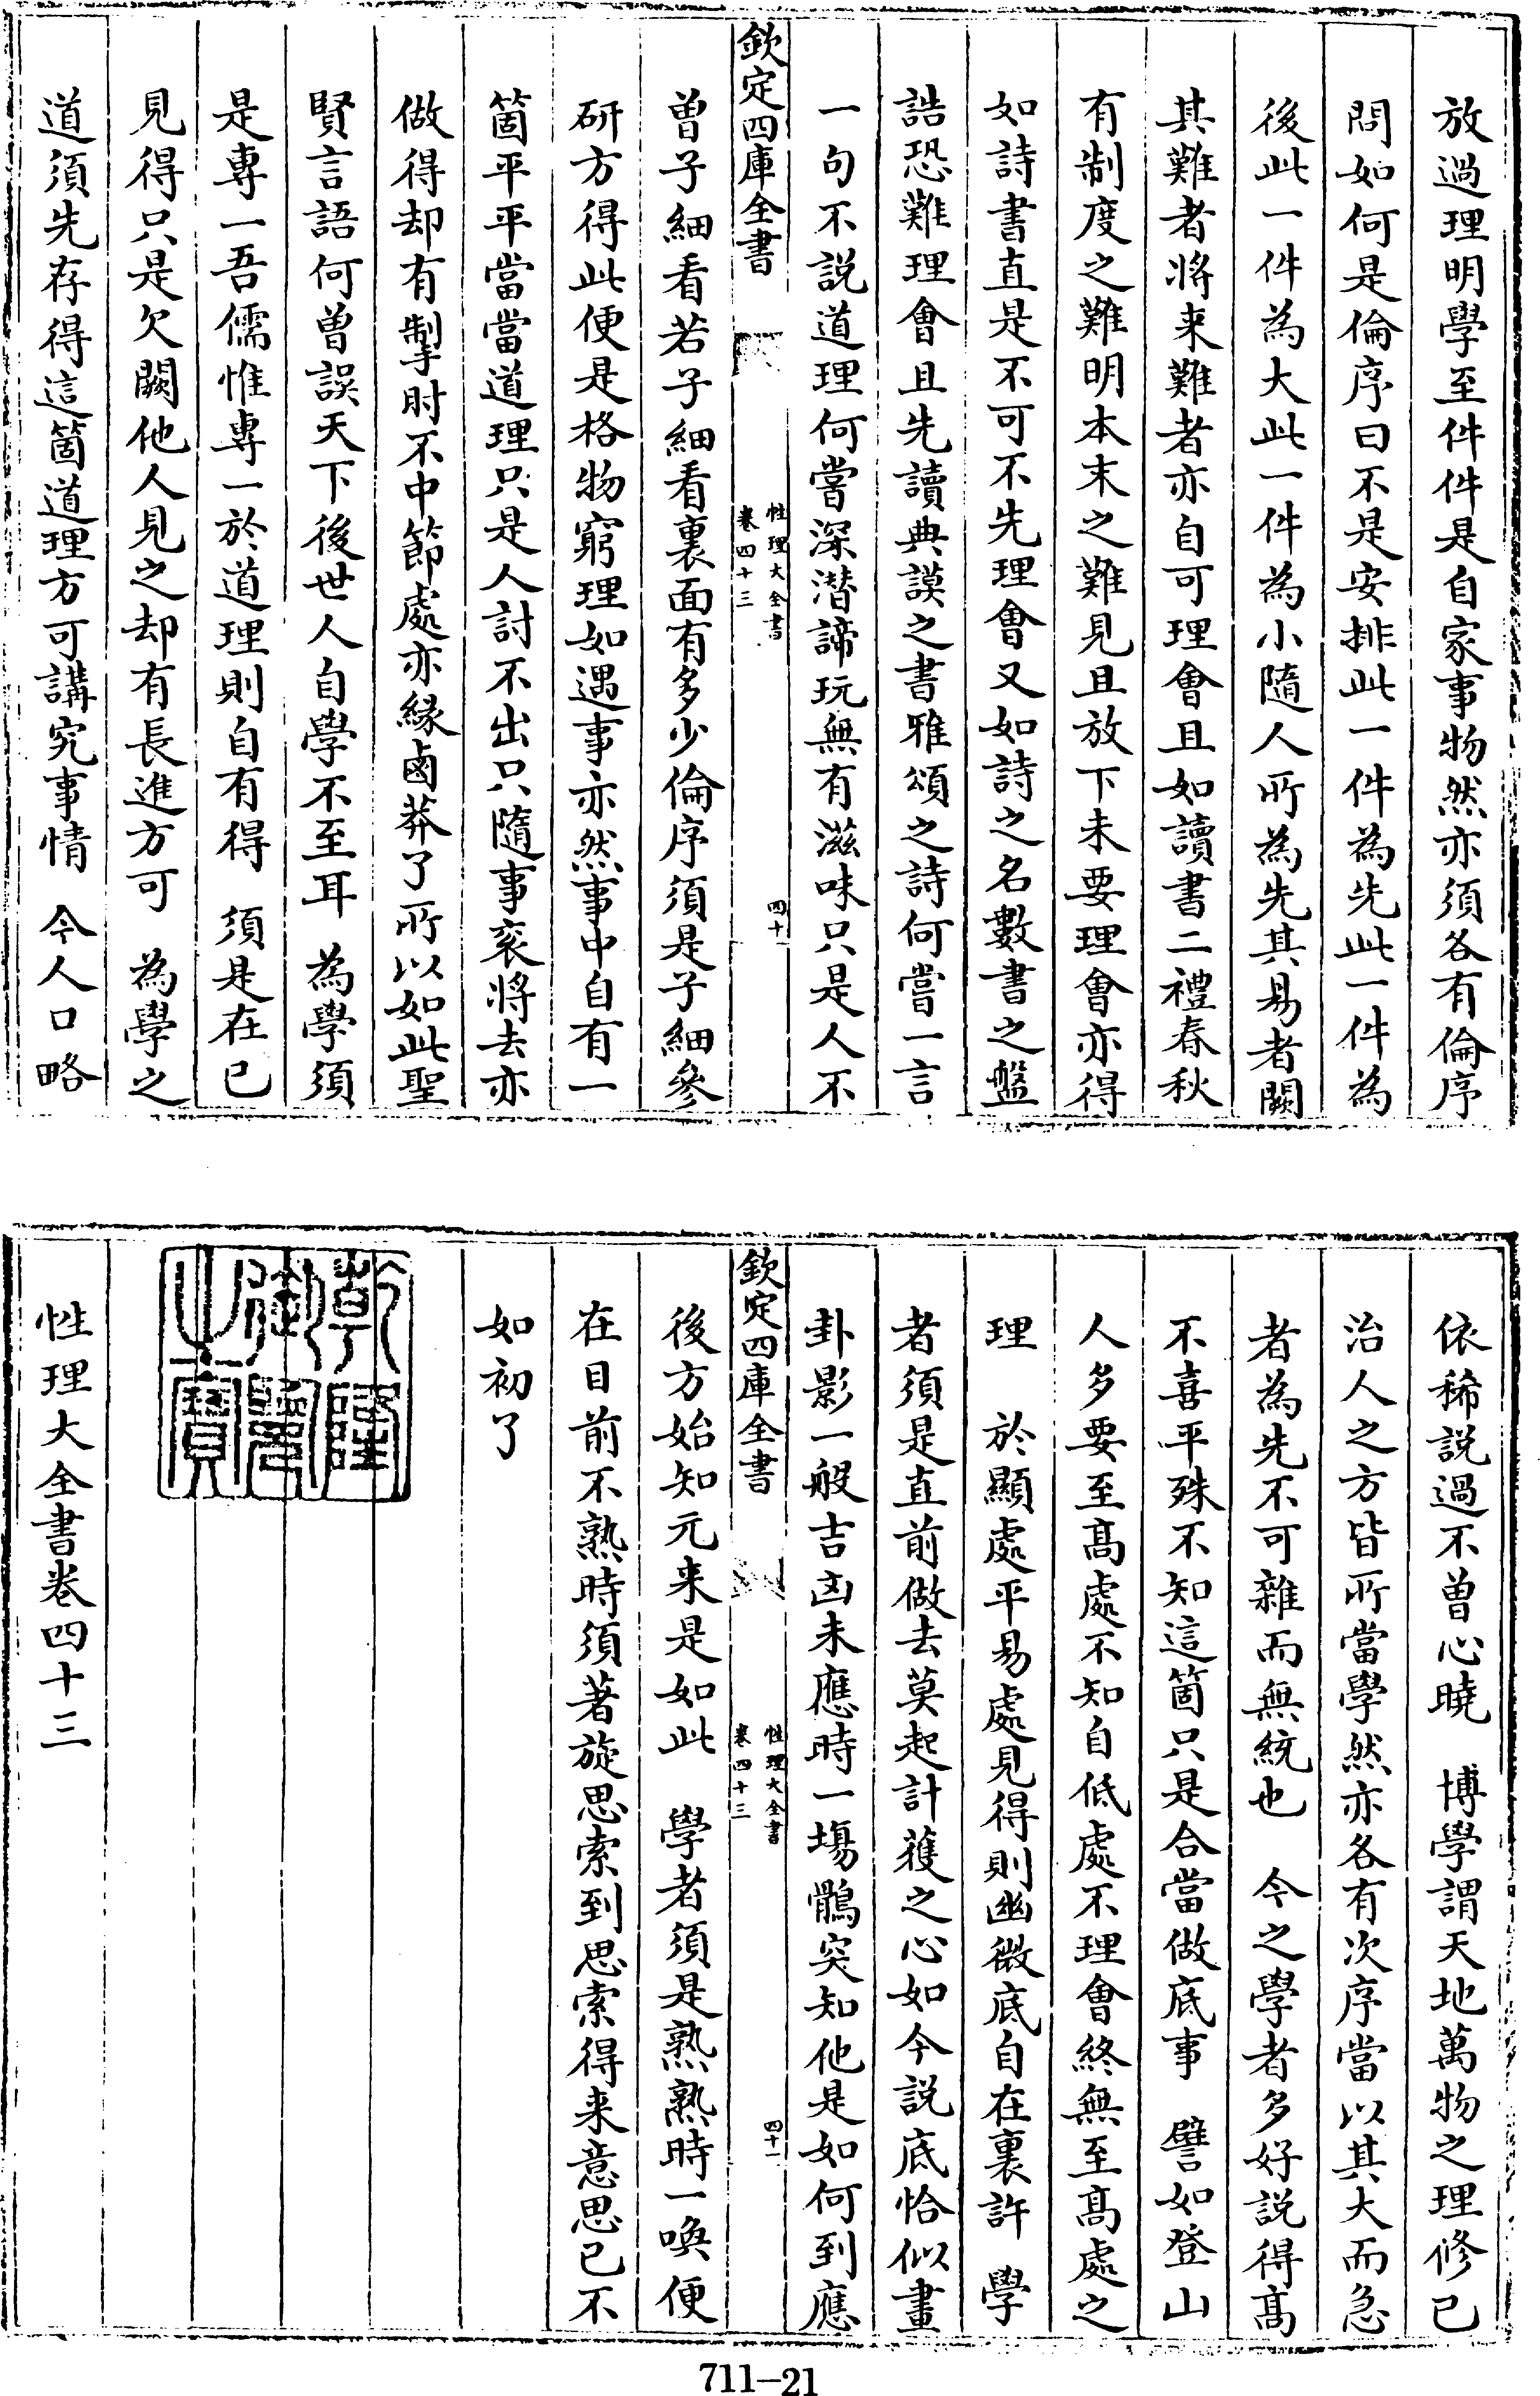 放過理明學至件件是自家事物然亦須各有倫序
問如何是倫序曰不是安排此一件為先此一件為
後此一件為大此一件為小隨人所為先其易者闕
其難者將来難者亦自可理會且如讀書二禮春秋
有制度之難明本末之難見且放下未要理會亦得
如詩書直是不可不先理會又如詩之名數書之盤
誥恐難理會且先讀典謨之書雅頌之詩何嘗一言
一句不説道理何嘗深潜諦玩無有滋味只是人不
欽定四庫全書
性理大全書
卷四十三
四十
曽子細看若子細看裏面有多少倫序須是子細參
研方得此便是格物窮理如遇事亦然事中自有一
箇平平當當道理只是人討不出只隨事衮將去亦
做得却有掣肘不中節處亦緣鹵莽了所以如此聖
賢言語何曽誤天下後世人自學不至耳 為學須
是專一吾儒惟專一於道理則自有得 須是在已
見得只是欠闕他人見之却有長進方可 為學之
道須先存得這箇道理方可講究事情 今人口略
依稀説過不曽心曉 博學謂天地萬物之理修已
治人之方皆所當學然亦各有次序當以其大而急
者為先不可雜而無統也 今之學者多好説得髙
不喜平殊不知這箇只是合當做底事 譬如登山
人多要至髙處不知自低處不理會終無至髙處之
理 於顯處平易處見得則幽微底自在裏許 學
者須是直前做去莫起計獲之心如今説底恰似畫
卦影一般吉凶未應時一塲鶻突知他是如何到應
欽定四庫全書
性理大全書
卷四十三
四十一
後方始知元来是如此 學者須是熟熟時一喚便
在目前不熟時須著旋思索到思索得来意思已不
如初了
乾隆御覽之寶
性理大全書卷四十三
711-21